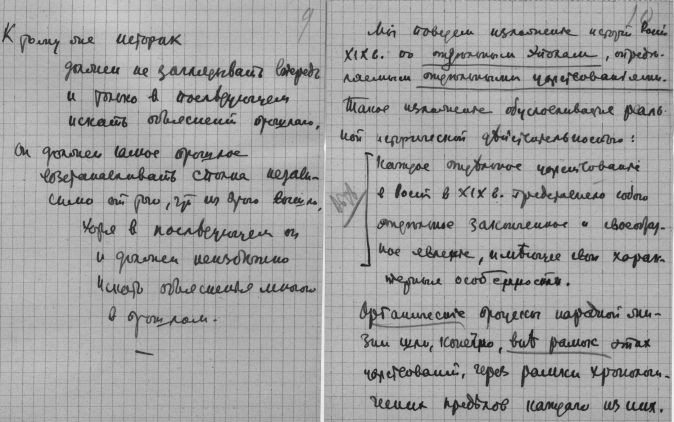 9
К тому же историк
должен не заглядывать вперед
и только в последующем
искать объяснений прошлого.
Он должен самое прошлое
восстанавливать столь незави-
симо от того, что из этого вышло,
Хотя в последующем он
и должен неизбежно
искать объяснения многого
в прошлом.
10
Мы поведем изложение истории России
XIX в. по отдельным эпохам, опреде-
ляемым отдельными царствованиями.
Такое изложение обусловливается реаль-
ной исторической действительностью:
Каждое отдельное царствование
в России в XIX в. представляло собою
отдельное законченное и своеобраз-
ное явление, имевшее свои харак-
терные особенности.
Органические процессы народной жи-
зни шли, конечно, вне рамок этих
царствований, через рамки хронологи-
ческих пределов каждого из них.